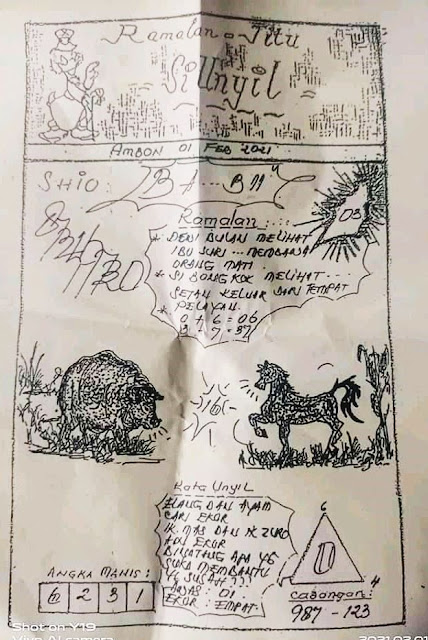 Ramalan - Jitu
Si Unyil
AMBON 01 FEB 2021
SHIO:
Ramalan
03
* DEWI BULAN MELIHAT
IBU SURI ... MEMBAWA
ORANG MATI
* SI BONGKOK MELIHAT ....
SETAN KELUAR DARI TEMPAT
* PELAYAN.
0 + 6 = 06
16
Kata Unyil
ELANG DAN AYAM
CARI EKOR
IK. MAS DAN IK
ADU EKOR
BINATANG APA YG
SUKA MEMBANTU
YG SUSAH ???
AWAS: 01
EKOR: EMPAT.
6
0
4
ANGKA MANIS:
6 2 3 1
Cabangan:
987 - 123
Shot on Y19
Vivo AI camera